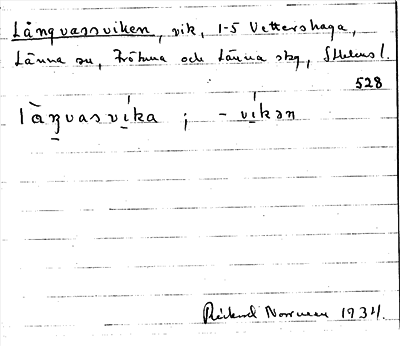 Långvassviken, vik, 1-5 Vettershaga,
Länna sn, Frötuna och Länna skg, Sthlms l.
528
làŋvasvi̱ka ; - vi̱kən
Rickard Norrman 1934.